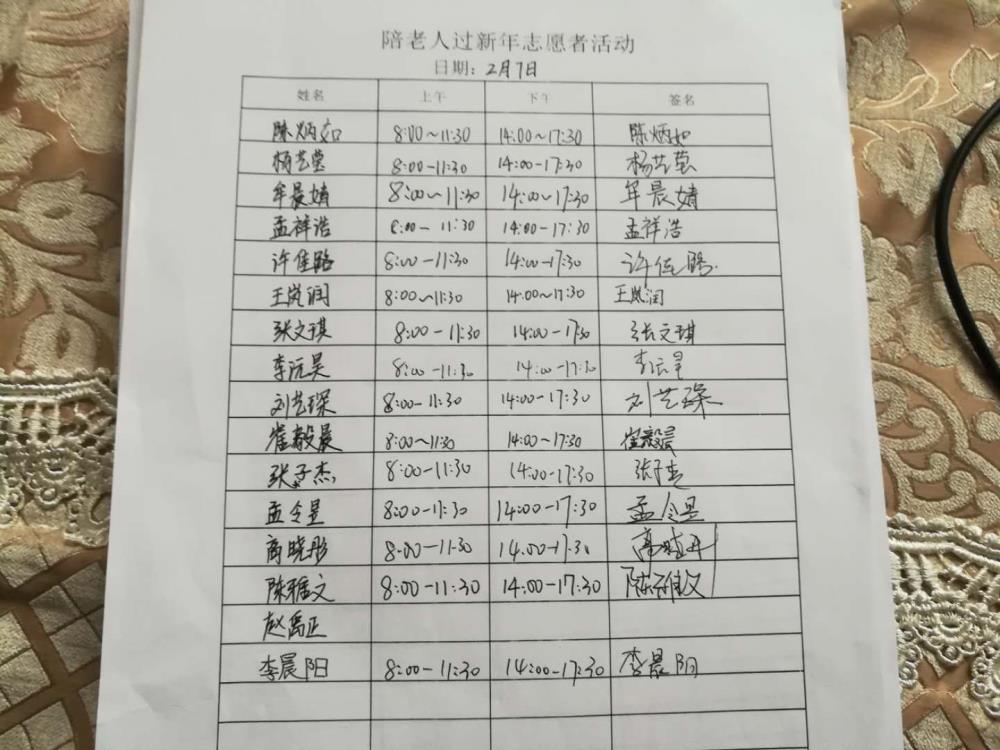 陪老人过新年志愿者活动
日期：2月7日
姓名 上午 下午 签名
陈炳如 8:00~11:30 14:00~17:30 陈炳如
杨艺莹 8:00-11:30 14:00-17:30 杨艺莹
牟晨婧 8:00~11:30 14:00~17:30 牟晨婧
孟祥浩 8:00-11:30 14:00-17:30 孟祥浩
许佳璐 8:00-11:30 14:00-17:30 许佳璐
王岚润 8:00~11:30 14:00~17:30 王岚润
张文琪 8:00-11:30 14:00-17:30 张文琪
李沅昊 8:00-11:30 14:00-17:30
刘艺琛 8:00-11:30 14:00-17:30 刘艺琛
崔毅晨 8:00~11:30 14:00-17:30 崔毅晨
张子杰 8:00-11:30 14:00-17:30 张子杰
孟令昱 8:00-11:30 14:00-17:30 孟令昱
商晓彤 8:00-11:30 14.00-17.30
陈雅文 8:00-11:30 14:00-17:30 陈雅文
赵禹正
李晨阳 8:00-11:30 14:00-17:30 李晨阳